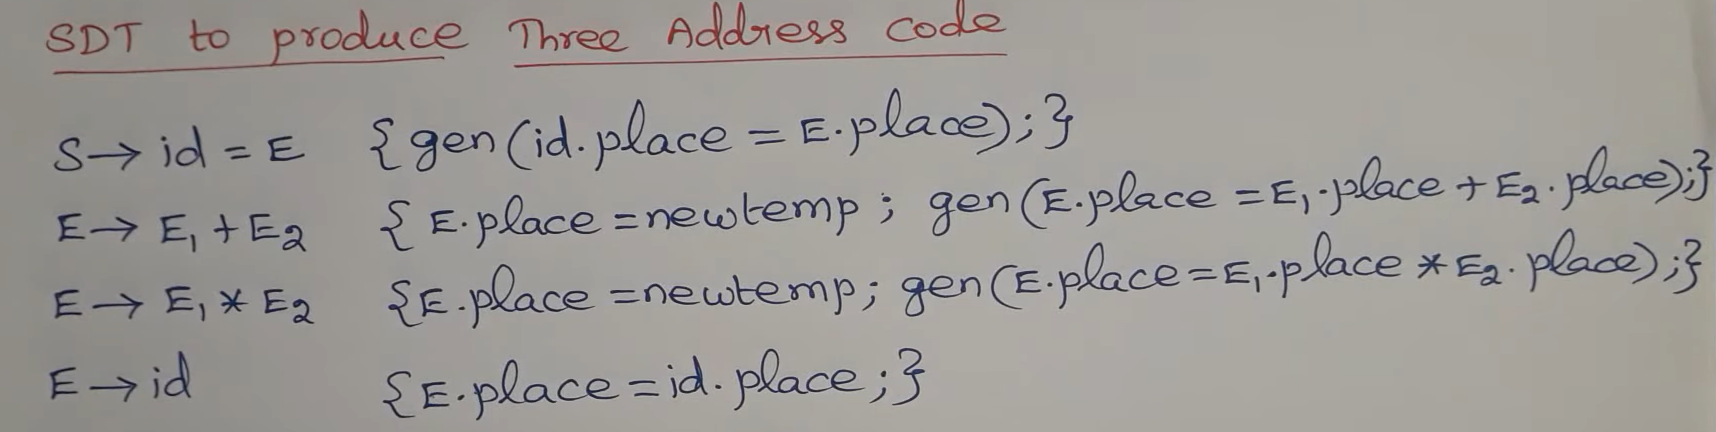 SDT to produce Three Address code
S→ id = E {gen(id.place = E.place);}
E→ E₁ + E₂ {E.place = newtemp; gen(E.place = E₁.place + E₂.place);}
E→ E₁ * E₂ {E.place = newtemp; gen(E.place = E₁.place * E₂.place);}
E→ id {E.place = id.place;}